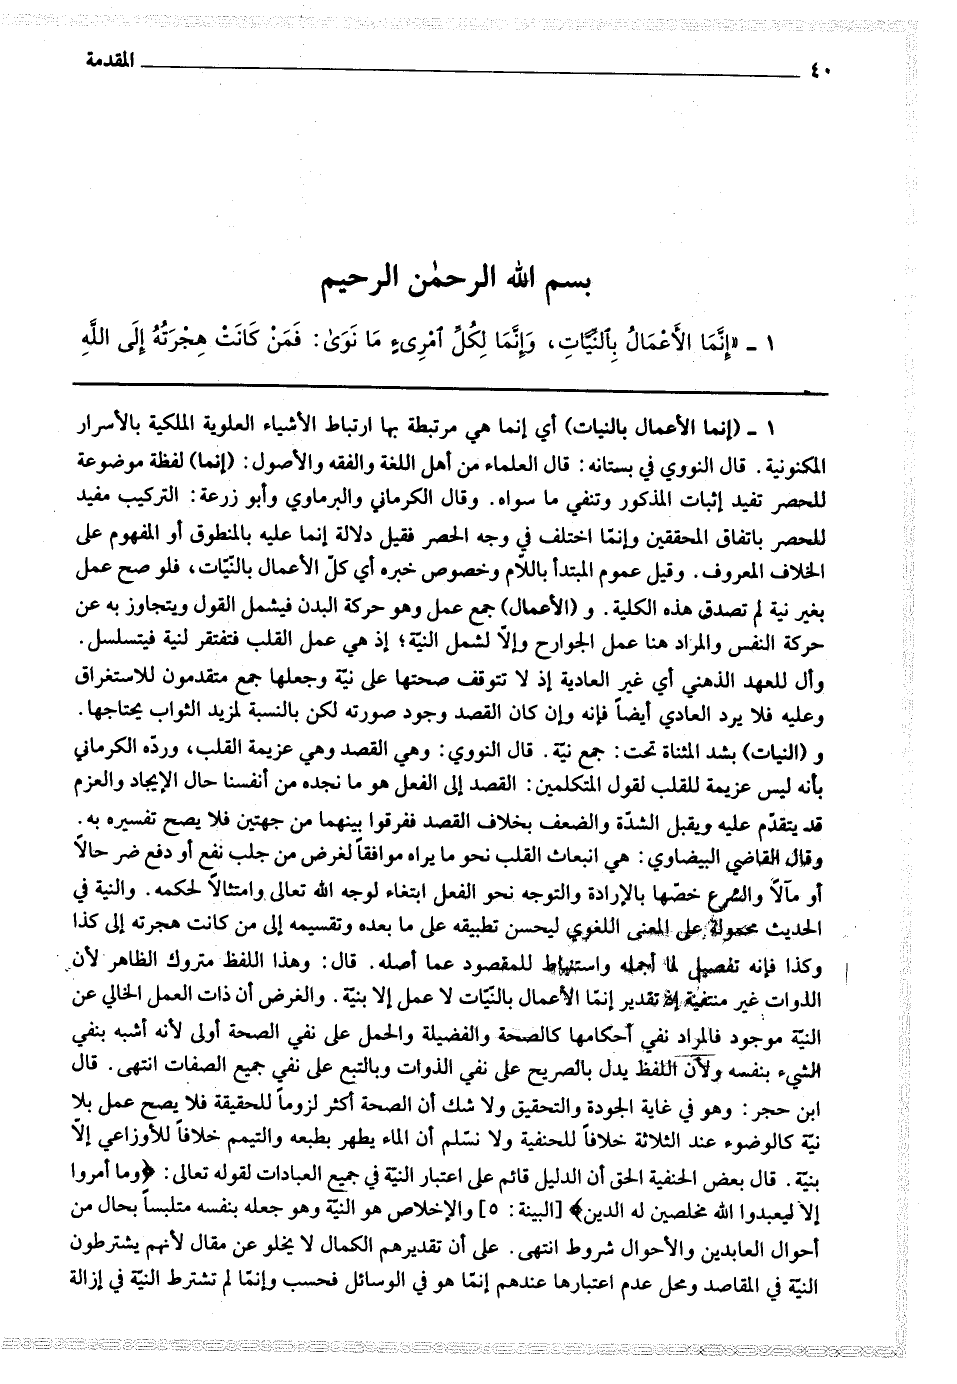 ٤٠ المقدمة
بسم الله الرحمٰن الرحيم
١ ـ «إِنَّمَا الأَعْمَالُ بِٱلنِّيَّاتِ، وَإِنَّمَا لِكُلِّ ٱمْرِىءٍ مَا نَوَىٰ: فَمَنْ كَانَتْ هِجْرَتُهُ إِلَى اللَّهِ
١ ـ (إنما الأعمال بالنيات) أي إنما هي مرتبطة بها ارتباط الأشياء العلوية الملكية بالأسرار
المكنونية. قال النووي في بستانه: قال العلماء من أهل اللغة والفقه والأصول: (إنما) لفظة موضوعة
للحصر تفيد إثبات المذكور وتنفي ما سواه. وقال الكرماني والبرماوي وأبو زرعة: التركيب مفيد
للحصر باتفاق المحققين وإنمّا اختلف في وجه الحصر فقيل دلالة إنما عليه بالمنطوق أو المفهوم على
الخلاف المعروف. وقيل عموم المبتدأ باللاّم وخصوص خبره أي كلّ الأعمال بالنيّات، فلو صح عمل
بغير نية لم تصدق هذه الكلية. و (الأعمال) جمع عمل وهو حركة البدن فيشمل القول ويتجاوز به عن
حركة النفس والمراد هنا عمل الجوارح وإلاّ لشمل النيّة؛ إذ هي عمل القلب فتفتقر لنية فيتسلسل.
وأل للعهد الذهني أي غير العادية إذ لا تتوقف صحتها على نيّة وجعلها جمع متقدمون للاستغراق
وعليه فلا يرد العادي أيضاً فإنه وإن كان القصد وجود صورته لكن بالنسبة لمزيد الثواب يحتاجها.
و (النيات) بشد المثناة تحت: جمع نيّة. قال النووي: وهي القصد وهي عزيمة القلب، وردّه الكرماني
بأنه ليس عزيمة للقلب لقول المتكلمين: القصد إلى الفعل هو ما نجده من أنفسنا حال الإيجاد والعزم
قد يتقدّم عليه ويقبل الشدّة والضعف بخلاف القصد ففرقوا بينهما من جهتين فلا يصح تفسيره به.
وقال القاضي البيضاوي: هي انبعاث القلب نحو ما يراه موافقاً لغرض من جلب نفع أو دفع ضر حالاً
أو مآلاً والشرع خصّها بالإرادة والتوجه نحو الفعل ابتغاء لوجه الله تعالى وامتثالاً لحكمه. والنية في
الحديث محمولة على المعنى اللغوي ليحسن تطبيقه على ما بعده وتقسيمه إلى من كانت هجرته إلى كذا
وكذا فإنه تفصيل لما أجمله واستنباط للمقصود عما أصله. قال: وهذا اللفظ متروك الظاهر لأن
الذوات غير منتفية إذ تقدير إنمّا الأعمال بالنيّات لا عمل إلا بنيّة. والغرض أن ذات العمل الخالي عن
النيّة موجود فالمراد نفي أحكامها كالصحة والفضيلة والحمل على نفي الصحة أولى لأنه أشبه بنفي
الشيء بنفسه ولأن اللفظ يدل بالصريح على نفي الذوات وبالتبع على نفي جميع الصفات انتهى. قال
ابن حجر: وهو في غاية الجودة والتحقيق ولا شك أن الصحة أكثر لزوماً للحقيقة فلا يصح عمل بلا
نيّة كالوضوء عند الثلاثة خلافاً للحنفية ولا نسّلم أن الماء يطهر بطبعه والتيمم خلافاً للأوزاعي إلاّ
بنيّة. قال بعض الحنفية الحق أن الدليل قائم على اعتبار النيّة في جميع العبادات لقوله تعالى: ﴿وما أمروا
إلا ليعبدوا الله مخلصين له الدين﴾ [البينة: ٥] والإخلاص هو النيّة وهو جعله بنفسه متلبساً بحال من
أحوال العابدين والأحوال شروط انتهى. على أن تقديرهم الكمال لا يخلو عن مقال لأنهم يشترطون
النيّة في المقاصد ومحل عدم اعتبارها عندهم إنمّا هو في الوسائل فحسب وإنمّا لم تشترط النيّة في إزالة